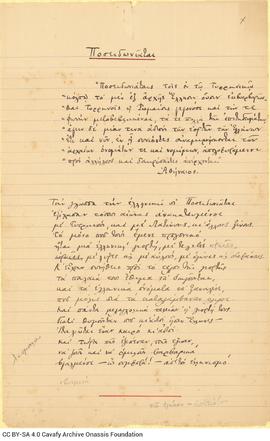 Ποσειδωνιᾶται
«Ποσειδωνιάταις τοῖς ἐν τῷ Τυρρηνικῷ
«κόλπῳ τὸ μὲν ἐξ ἀρχῆς Ἕλλησιν οὖσιν ἐκβαρβαρῶσ-
«θαι Τυρρηνοῖς ἢ Ρωμαίοις γεγονόσι καὶ τήν τε
«φωνὴν μεταβεβληκέναι, τά τε πολλὰ τῶν ἐπιτηδευμάτων,
«ἄγειν δὲ μίαν τινὰ αὐτοὺς τῶν ἑορτῶν τῶν Ἑλλήνων
«ἔτι καὶ νῦν, ἐν ᾗ συνιόντες ἀναμιμνήσκονται τῶν
«ἀρχαίων ὀνομάτων τε καὶ νομίμων, ἀπολοφυράμενοι
«πρὸς ἀλλήλους καὶ δακρύσαντες ἀπέρχονται»
Ἀθήναιος.
Τὴν γλῶσσα τὴν ἑλληνικὴ οἱ Ποσειδωνιᾶται
ἐξέχασαν τόσους αἰῶνας ἀνακατευμένοι
μὲ Τυρρηνούς, καὶ μὲ Λατίνους, κι ἄλλους ξένους.
Τὸ μόνο ποὺ τοὺς ἔμενε προγονικὸ
ἦταν μιὰ ἑλληνικὴ γιορτή, μὲ τελετὲς
μὲ καὶ μὲ αὐλούς, μὲ ἀγῶνας
Κ' εἶχαν συνήθειο πρὸς τὸ τέλος τῆς γιορτῆς
τὰ παλαιά τους ἔθιμα νὰ διηγοῦνται,
καὶ τὰ ἑλληνικὰ ὀνόματα νὰ ξαναλέν,
ποὺ μόλις πιὰ τὰ καταλάμβαναν
Καὶ πάντα μελαγχολικὰ τελείων' ἡ γιορτή τους.
Γιατὶ θυμοῦνταν ποὺ κι αὐτοὶ ἦσαν Ἕλληνες—
Ἰταλιῶται ἕναν καιρὸ κι αὐτοὶ
καὶ τώρα πῶς ἐξέπεσαν, πῶς ἔγιναν,
νὰ ζοῦν καὶ νὰ ὁμιλοῦν βαρβαρικὰ
βγαλμένοι — ὢ συμφορά! — ἀπ' τὸν ἑλληνισμό.
CC BY-SA 4.0 Cavafy Archive Onassis Foundation